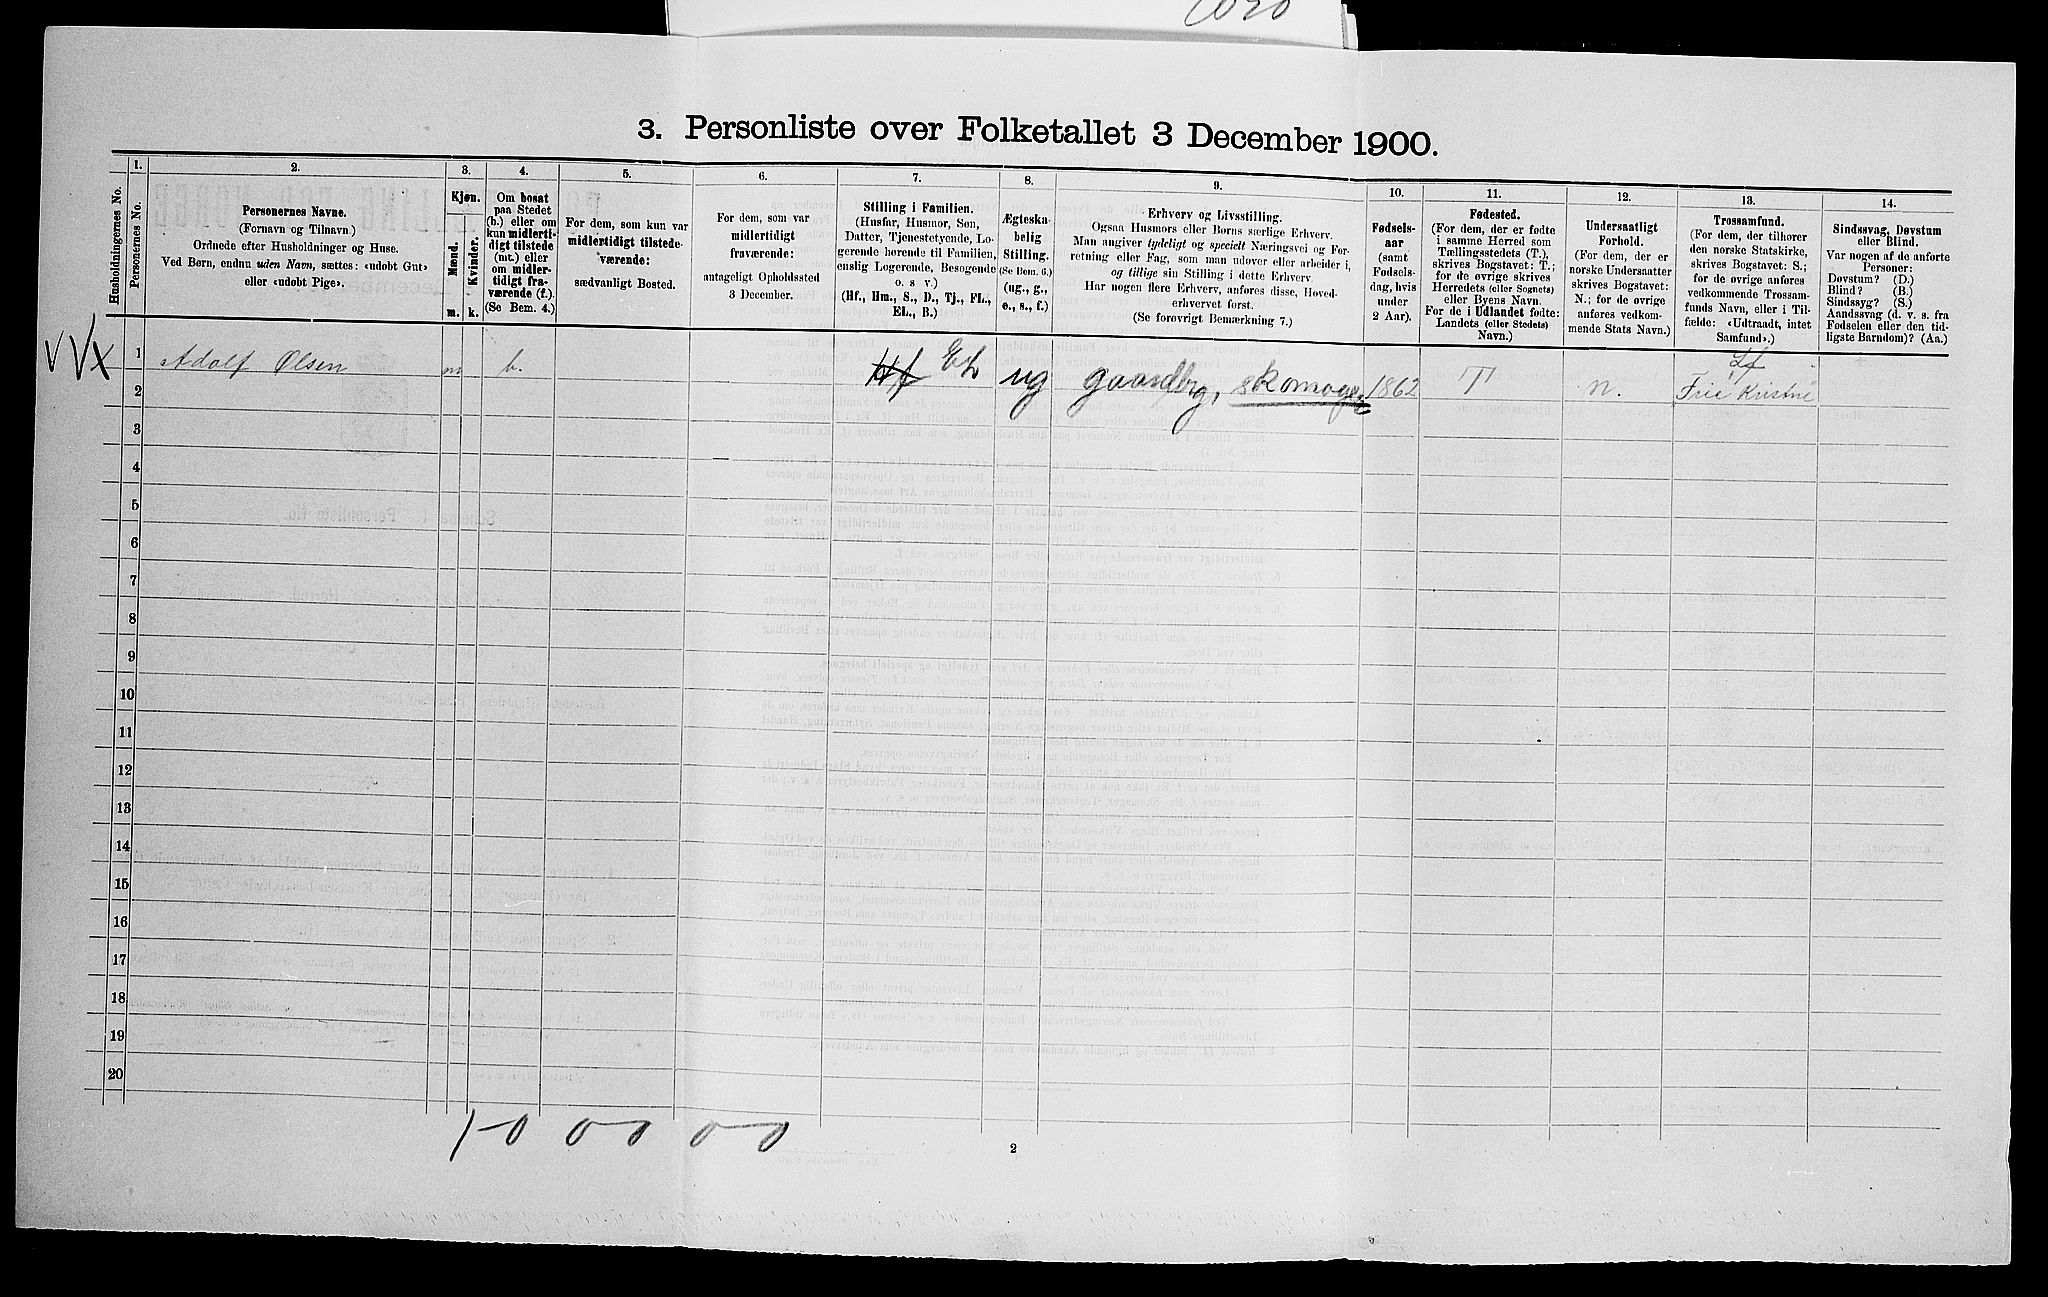 3. Personliste over Folketallet 3 December 1900.
Husholdningernes No.
1.
Personernes No.
2.
Personernes Navne.
(Fornavn og Tilnavn.)
Ordnede efter Husholdninger og Huse.
Ved Børn, endnu uden Navn, sættes: «udøbt Gut»
eller «udøbt Pige».
3.
Kjøn.
Mænd.
Kvinder.
m.
k.
4.
Om bosat
paa Stedet
(b.) eller om
kun midlerti-
digt tilstede
(mt.) eller
om midler-
tidigt fra-
værende (f.).
(Se Bem. 4.)
5.
For dem, som kun var
midlertidigt tilstede-
værende:
sædvanligt Bosted.
6.
For dem, som var
midlertidigt
fraværende:
antageligt Opholdssted
3 December.
7.
Stilling i Familien.
(Husfar, Husmor, Søn,
Datter, Tjenestetyende, Lo-
gerende hørende til Familien,
enslig Logerende, Besøgende
o. s v.)
(Hf., Hm., S., D., Tj., FL.,
EL., B.)
8.
Ægteska-
belig
Stilling.
(Se Bem. 6.)
(ug., g.,
e., s., f.)
9.
Erhverv og Livsstilling.
Ogsaa Husmors eller Børns særlige Erhverv.
Man angiver tydeligt og specielt Næringsvei og For-
retning eller Fag, som man udøver eller arbeider i,
og tillige sin Stilling i dette Erhverv.
Har nogen flere Erhverv, anføres disse, Hoved-
erhvervet først.
(Se forøvrigt Bemærkning 7.)
10.
Fødsels-
aar
(samt
Fødsels-
dag, hvis
under
2 Aar).
11.
Fødested.
(For dem, der er fødte
i samme Herred som
Tællingsstedets (T.),
skrives Bogstavet: T.;
for de øvrige skrives
Herredets (eller Sognets)
eller Byens Navn.
For de i Udlandet fødte:
Landets (eller Stedets)
Navn.)
12.
Undersaatligt
Forhold.
(For dem, der er
norske Undersaatter
skrives Bogstavet:
N.; for de øvrige
anføres vedkom-
mende Stats Navn.)
13.
Trossamfund.
(For dem, der tilhører
den norske Statskirke,
skrives Bogstavet: S.;
for de øvrige anføres
vedkommende Trossam-
funds Navn, eller i Til-
fælde: «Udtraadt, intet
Samfund».)
14.
Sindssvag, Døvstum
eller Blind.
Var nogen af de anførte
Personer:
Døvstum? (D.)
Blind? (B.)
Sindssyg? (S.)
Aandssvag (d. v. s. fra
Fødselen eller den tid-
ligste Barndom)? (Aa.)
1 Adolf Olsen m b. Hf EL ug gaardbrg, skomager 1862 T N. Frie Kristne
2
3
4
5
6
7
8
9
10
11
12
13
14
15
16
17
18
19
20
1-0 0 0 0-0
2